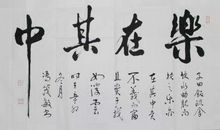 樂在其中
子曰飯疏食
飲水曲肱而
枕之樂亦
在其中矣
不義而富
且貴于我
如浮雲
冬月